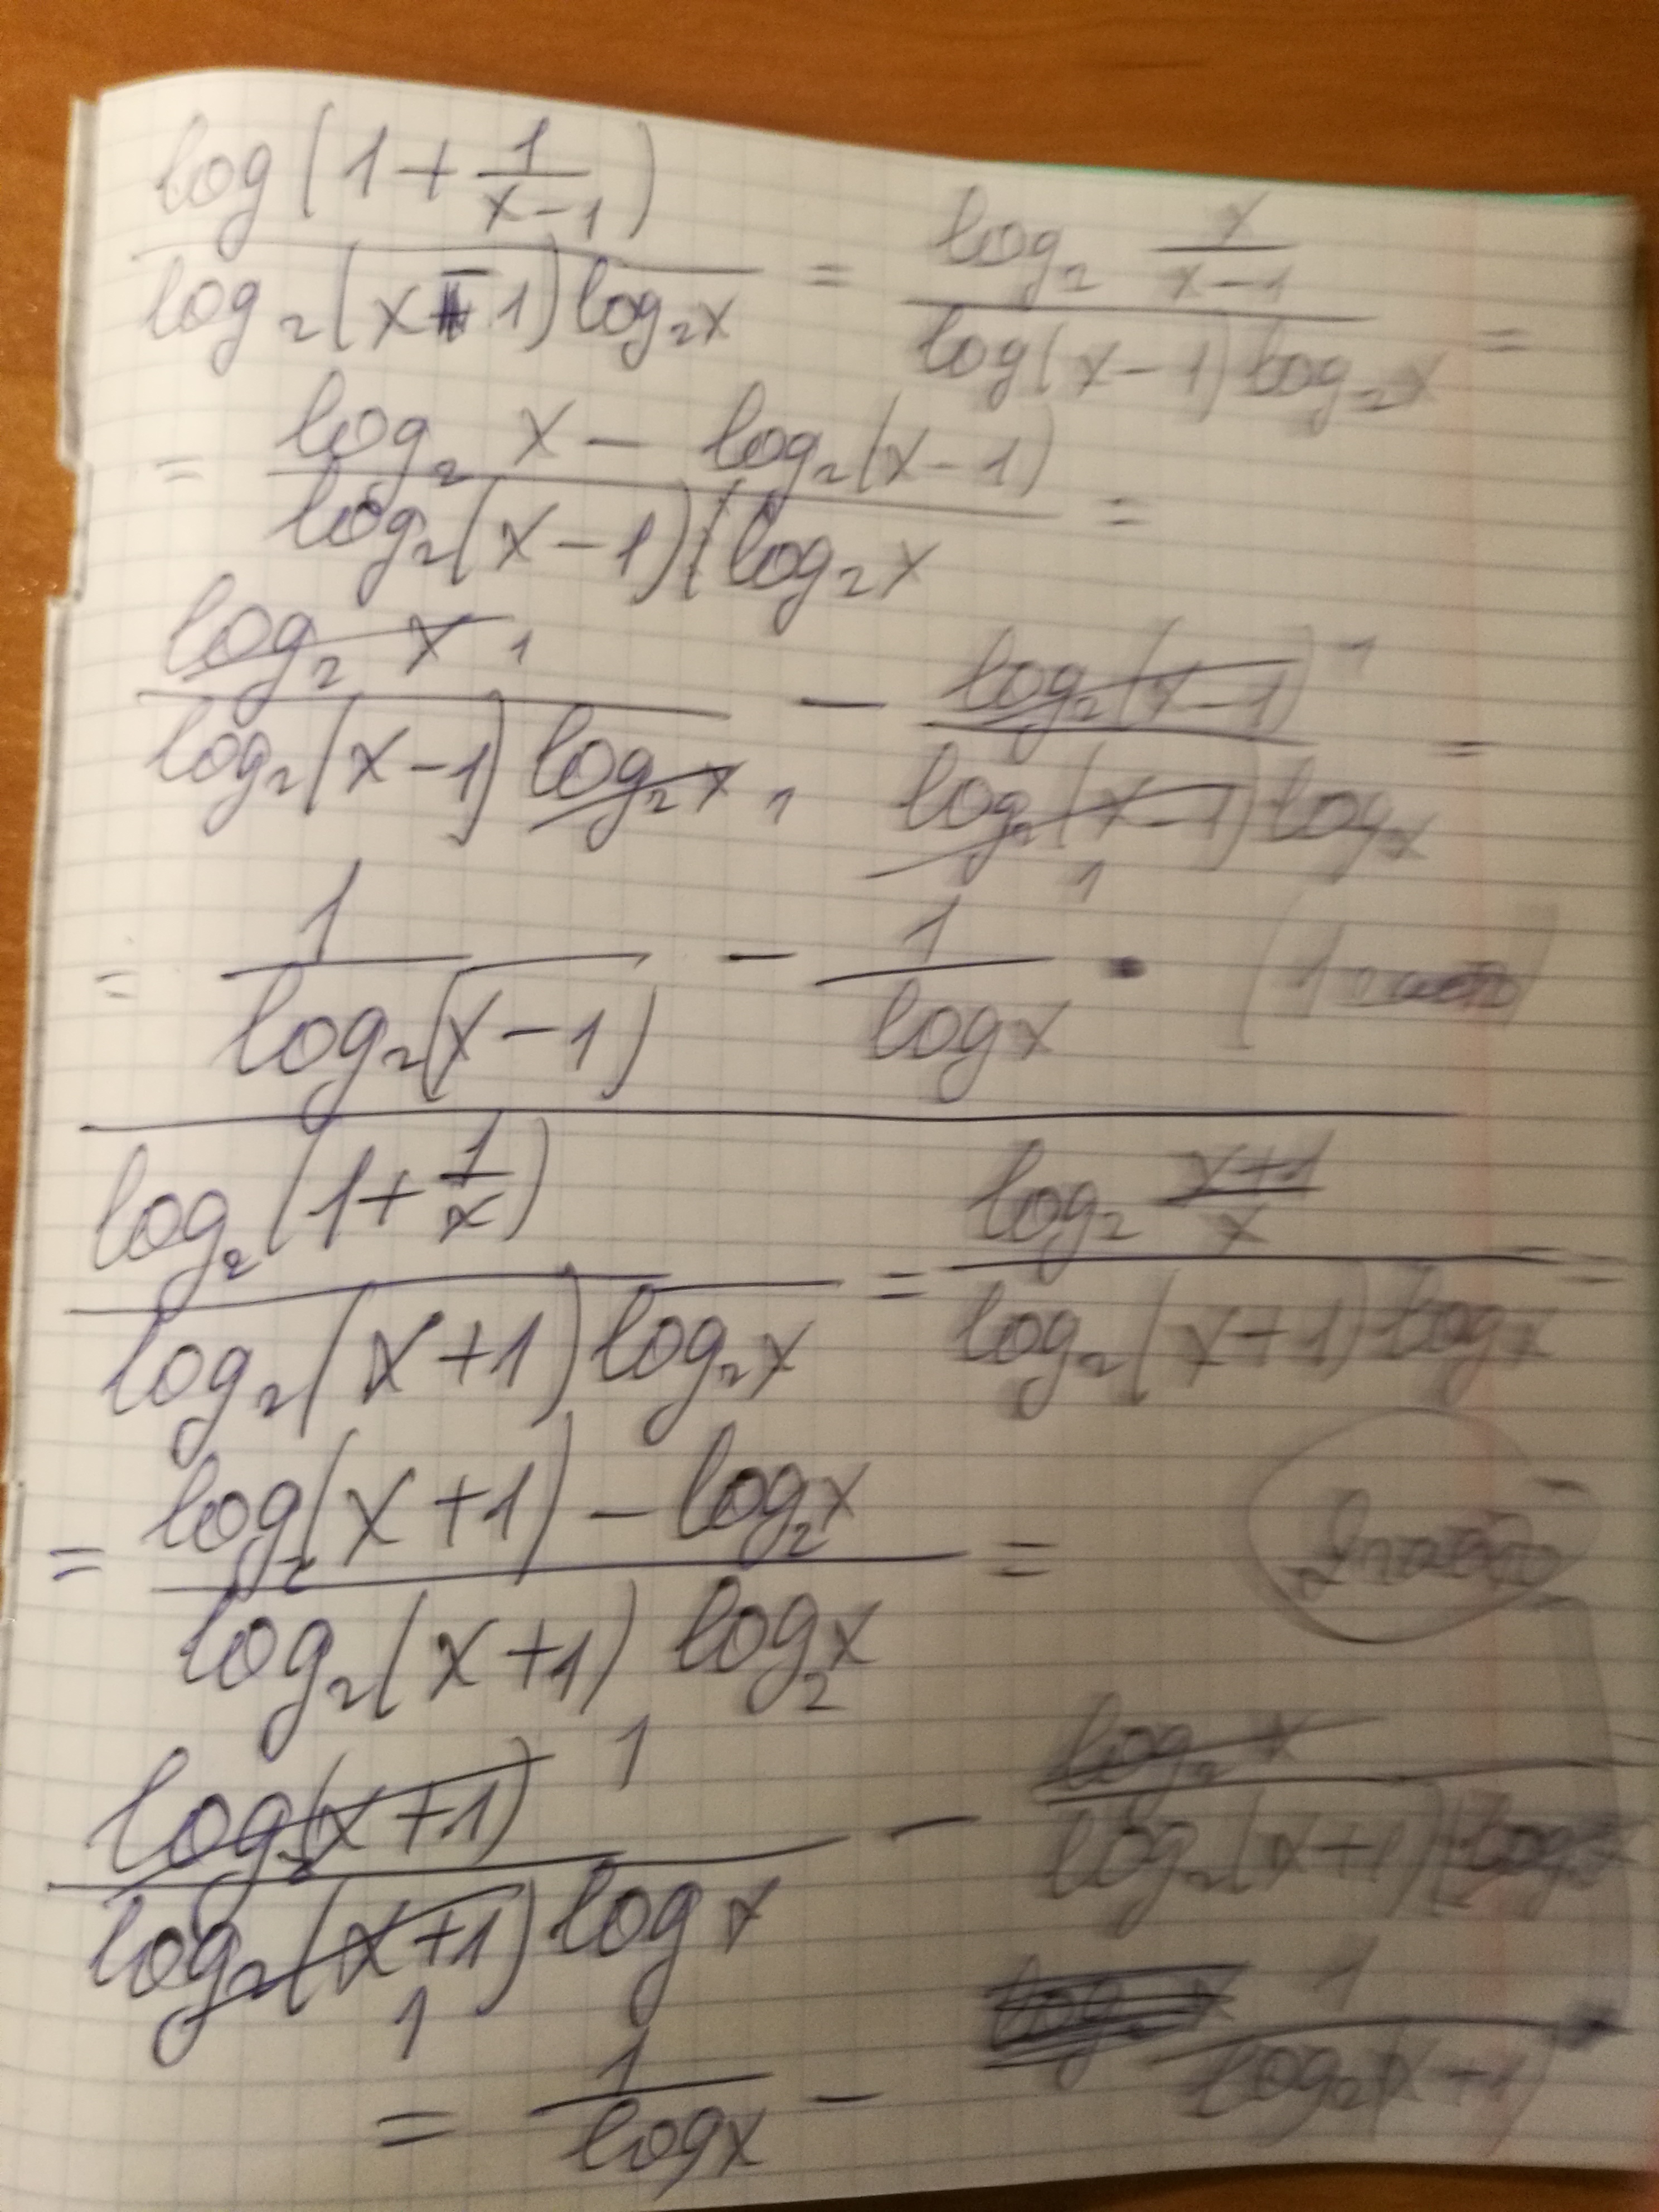 log(1+1/(x-1)) / (log₂(x-1)log₂x) = log₂ x/(x-1) / (log(x-1)log₂x) =
= (log₂ x - log₂(x-1)) / (log₂(x-1)(log₂x) =
log₂ x 1 / (log₂(x-1)log₂x 1) - log₂(x-1) 1 / (log₂(x-1)log₂x) 1 =
= 1/log₂(x-1) - 1/logx (1
log₂(1+1/x) / (log₂(x+1)log₂x) = log₂ (x+1)/x / (log₂(x+1)logx) =
= (log₂(x+1) - log₂x) / (log₂(x+1) log₂x) =
log₂(x+1) 1 / (log₂(x+1)logx) 1 - log₂x / (log₂(x+1)(log₂x)
= 1/logx - 1/log₂(x+1)